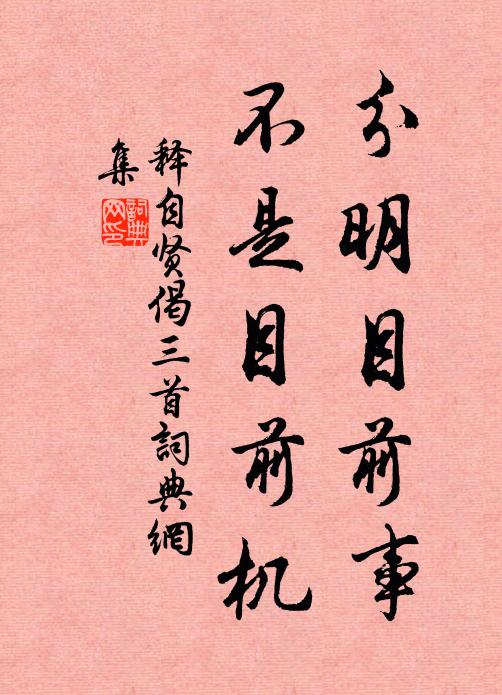 分明目前事
不是目前机
释自贤偈三首詞典網
集
詞典
网印